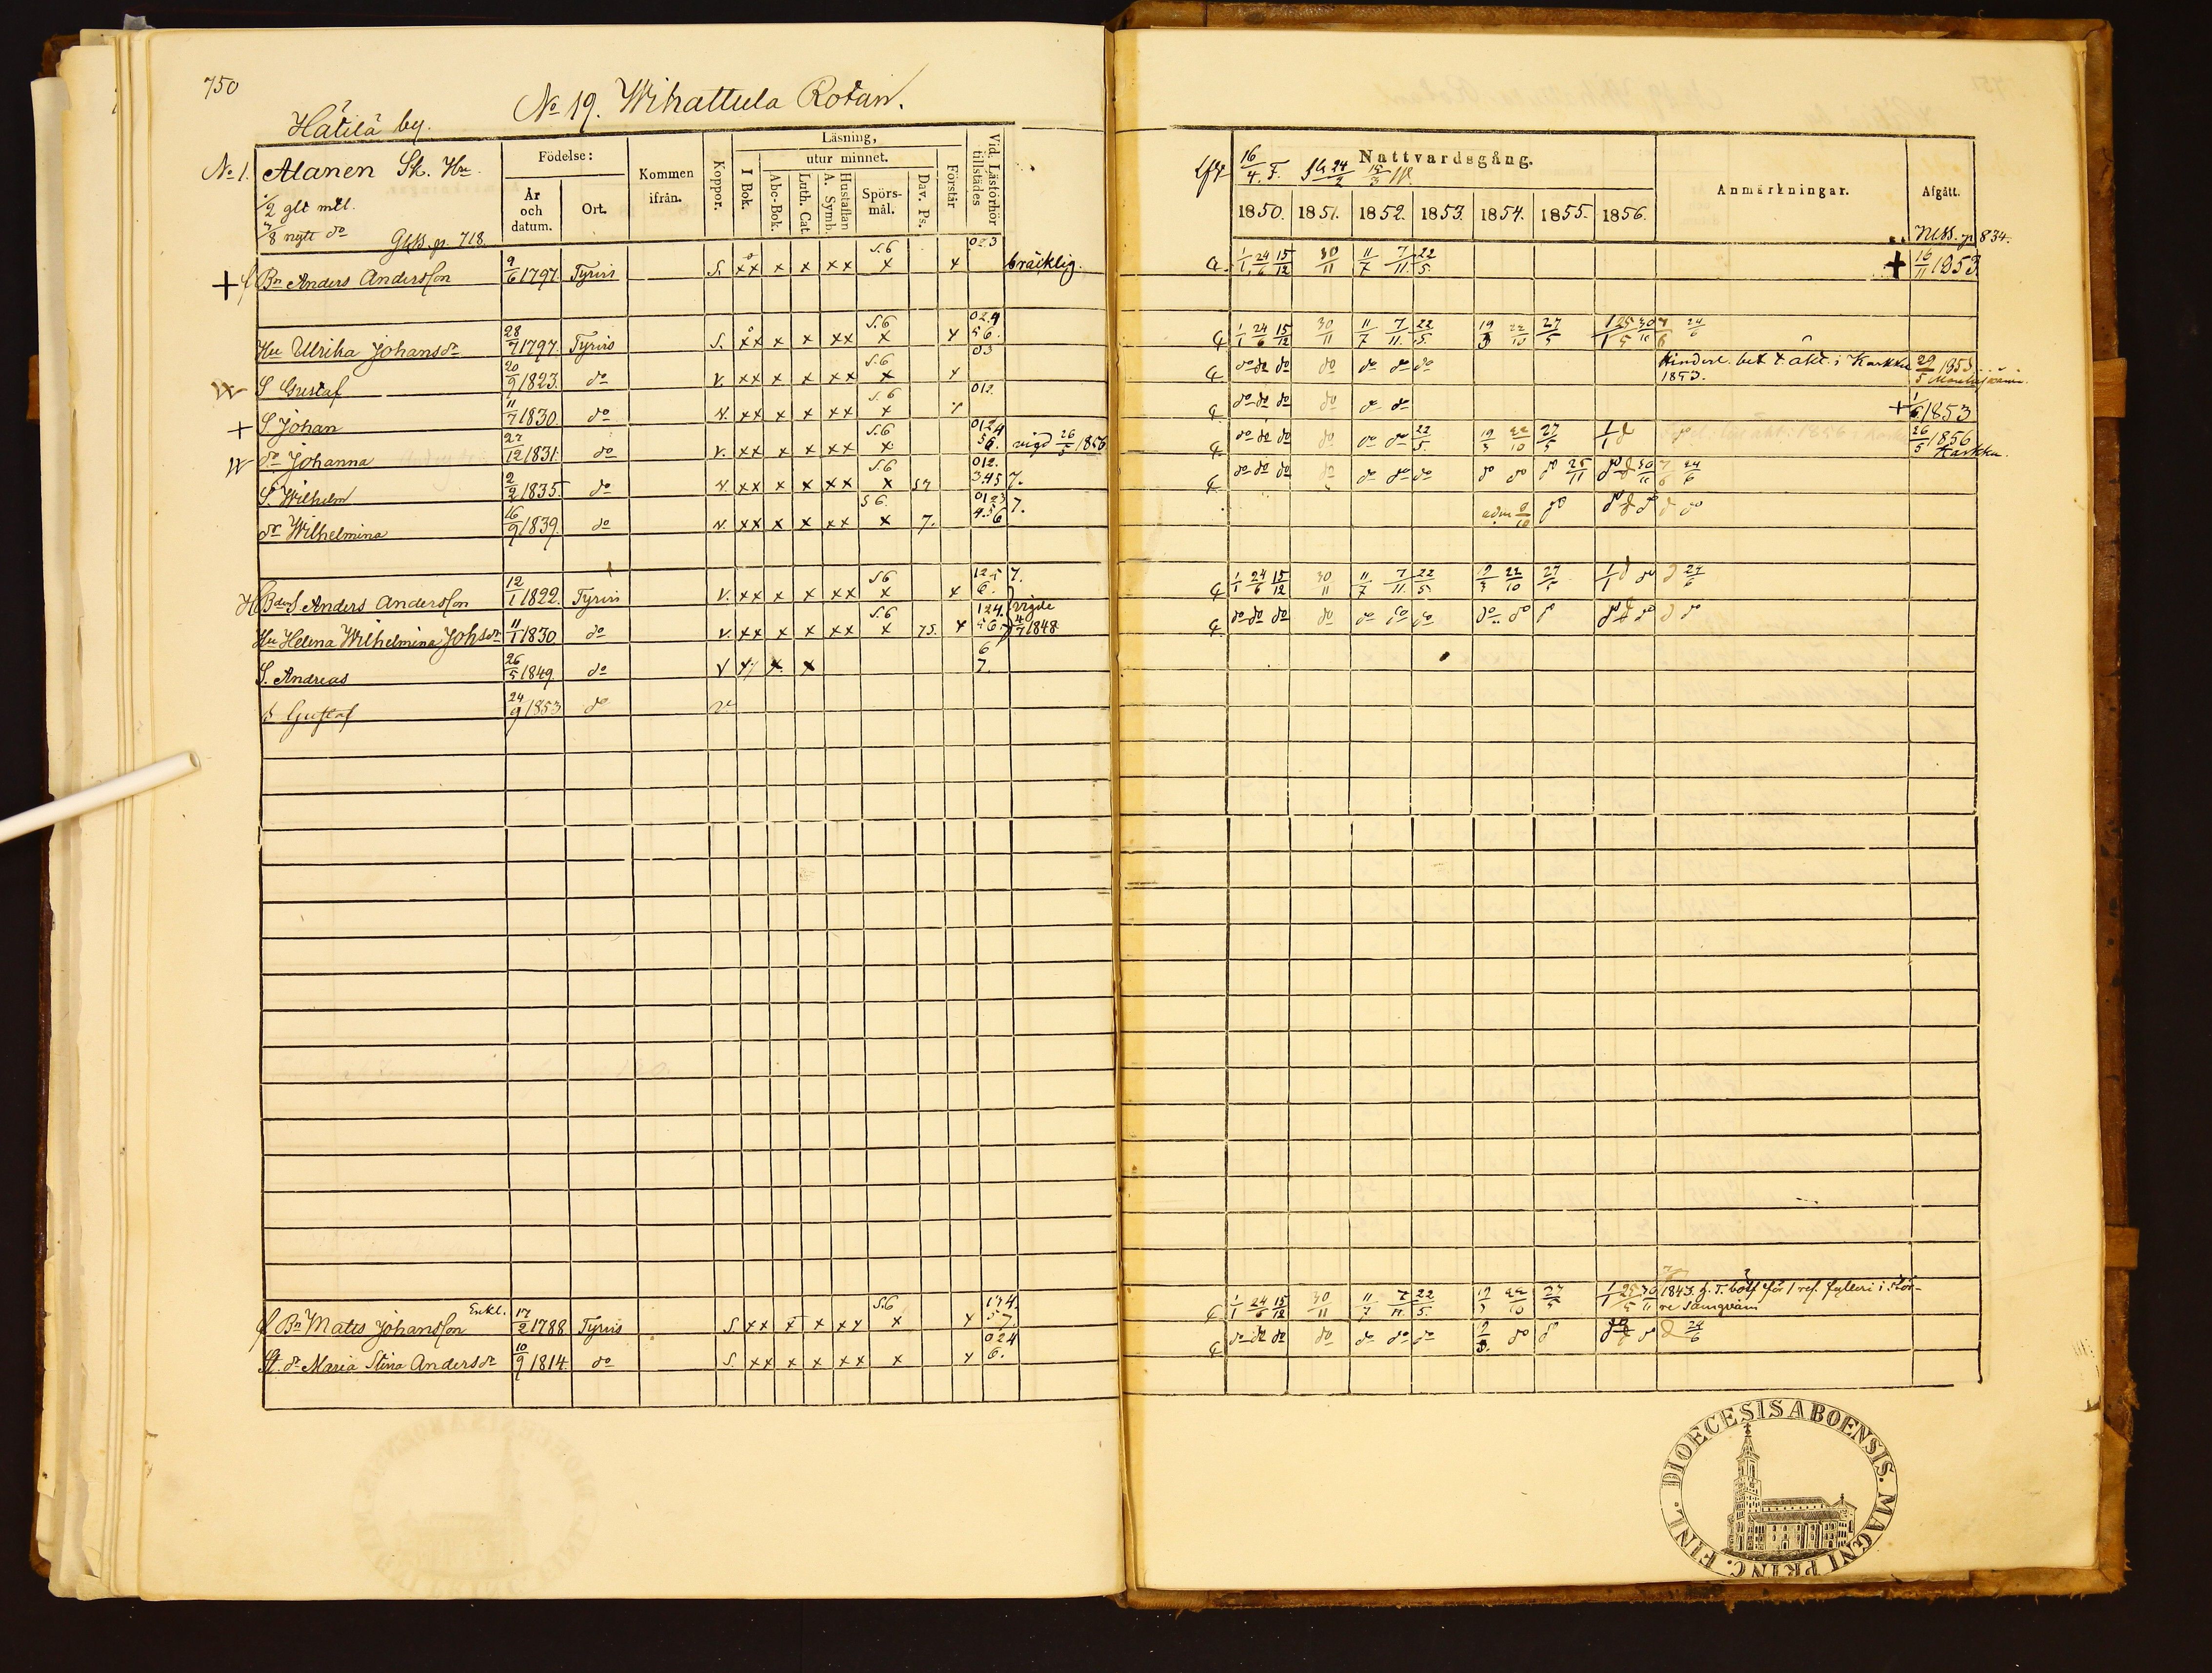 750
No 19. Wihattula Rotan.
Hätilä by.
No 1. Alanen Sk. Hn.
1/2 glt mtl.
3/8 nytt do
Gkss. p. 718.
Födelse:
År och datum.
Ort.
Kommen ifrån.
Koppor.
Läsning,
I Bok.
utur minnet.
Abc-Bok.
Luth. Cat.
Hustaflan A. Symb.
Spörs-mål.
Dav. Ps.
Förstår
Vid. Läsförhör tillstädes
Nattvardsgång.
16/4. F.
1850. 1851. 1852. 1853. 1854. 1855. 1856.
Anmärkningar.
Afgått.
Nkss. p 834.
+ Bn Anders Andersson 9/6 1797 Tyrvis S. xx x x xx S.6 x x 023 bräcklig. 1/1 24/6 15/12 30/11 11/7 7/11 22/5. + 16/11 1853
Hu Ulrika Johansdr 28/7 1797. Tyrvis S. xx x x xx S.6 x x 024 56. 1/1 24/6 15/12 30/11 11/7 7/11. 22/5. 19/3 22/10 27/5 1/1 25/5 30/11 7/6 24/6
S Gustaf 20/9 1823. do v. xx x x xx S.6 x x 03 do do do do do do do hinderl. bet. t. äkt. i Karkku 1853. 29/5 1853
+ S. Johan 11/7 1830. do v. xx x x xx S.6 x x 012. do do do do do do + 1/6 1853
dr Johanna 27/12 1831. do v. xx x x xx S.6 x 0124 56. vigd 26/5 1856 do do do do do do 22/5. 19/3 22/10 27/5 1/1 do 26/5 1856 Karkku
S. Wilhelm 2/2 1835. do v. xx x x xx S.6 x 57 012. 345 7. do do do do do do do do do do 25/11 do do 30/11 7/6 24/6
dr Wilhelmina 16/9 1839. do v. xx x x xx S6. x 7. 0123 456 7. adm 8/10 do do do do do do
Bdes S Anders Andersson 12/1 1822. Tyrvis v. xx x x xx S6 x x 125 6. 7. 1/1 24/6 15/12 30/11 11/7 7/11. 22/5. 19/3 22/10 27/5 1/1 do do do 24/6
Hu Helena Wilhelmina Johsdr 11/1 1830 do v. xx x x xx S.6 x 75. x 124. 56. vigde 4/7 1848 do do do do do do do do do do do do do do do
S. Andreas 26/5 1849. do v xx x x 6 7.
S Gustaf 24/9 1853 do v
Enkl.
Bn Matts Johansson 17/2 1788 Tyrvis S. xx x x xx S.6 x x 134. 57. 1/1 24/6 15/12 30/11 11/7 7/11. 22/5. 19/3 22/10 27/5 1/1 25/5 30/11 1843. g. T. böt för 1 res. fylleri i stör-
re samqväm
St. dr Maria Stina Andersdr 10/9 1814. do S. xx x x xx x x 024 6. do do do do do do do 9/3. do do do do do do 24/6
DIOECESIS ABOENSIS. MAGNI PRINC. FINL.